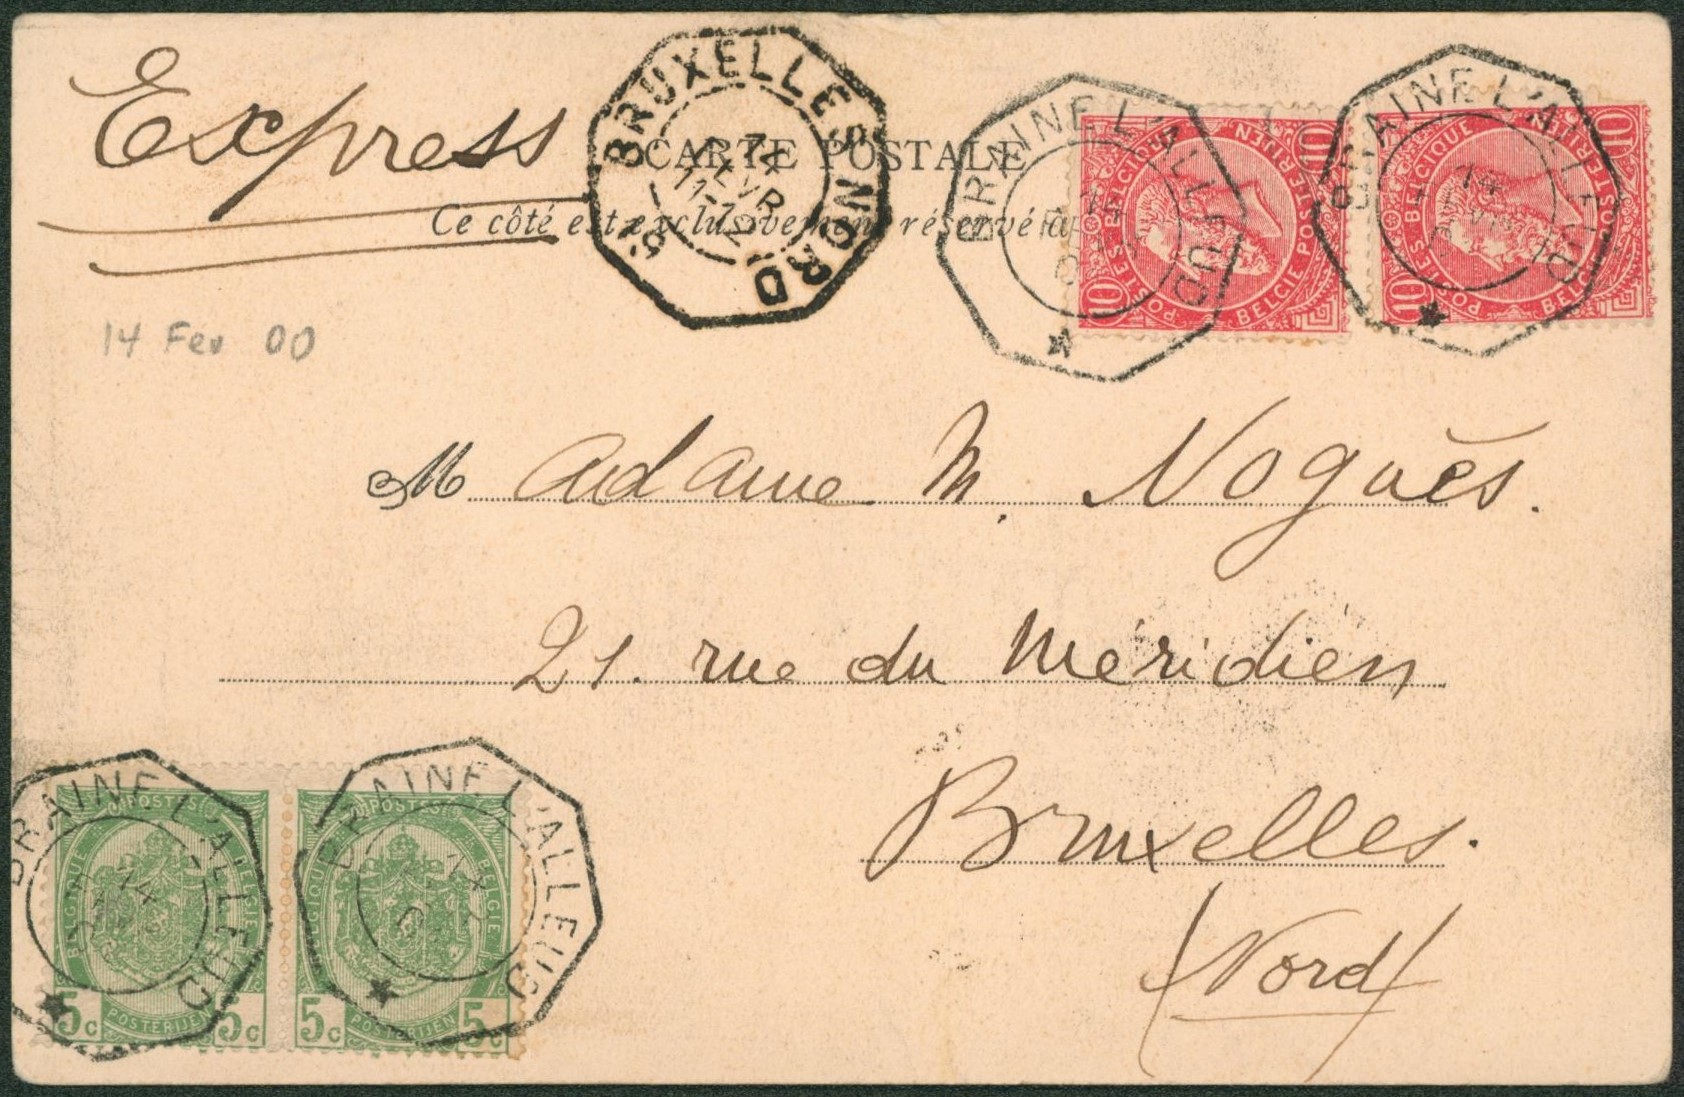 Express
CARTE POSTALE
Ce côté est exclusivement réservé à
BRUXELLES NORD
BRAINE L'ALLEUD
BRAINE L'ALLEUD
10 10
POSTES BELGIQUE POSTERIJEN
BELGIE
10 10
POSTES BELGIQUE POSTERIJEN
BELGIE
14 Fev 00
Madame M. Noguès.
21. rue du Méridien
Bruxelles.
(Nord)
BRAINE L'ALLEUD
BRAINE L'ALLEUD
POSTES
BELGIQUE BELGIE
5c POSTERIJEN 5c
POSTES
BELGIQUE BELGIE
5c POSTERIJEN 5c